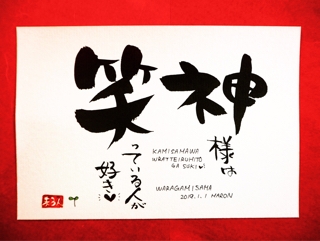 神様は
笑っている人が
好き♥
KAMISAMAWA
WRATTEIRUHITO
GA SUKI♥
WARAGAMISAMA
2019.1.1 MARON
まろん